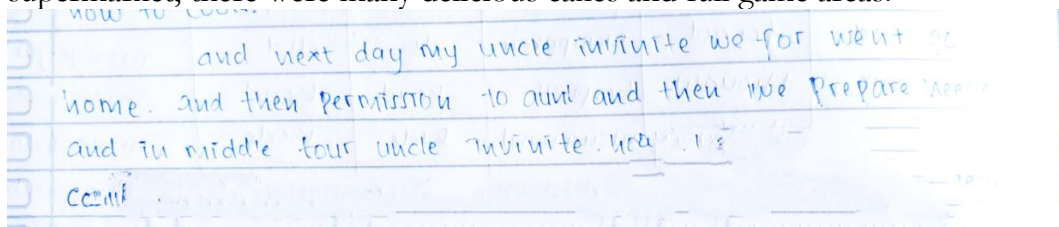 supermarket, there were many delicious cakes and fun game areas.
how to
and next day my uncle invinite we for went go
home. and then permission to aunt and then we prepare
and in middle tour uncle invinite.